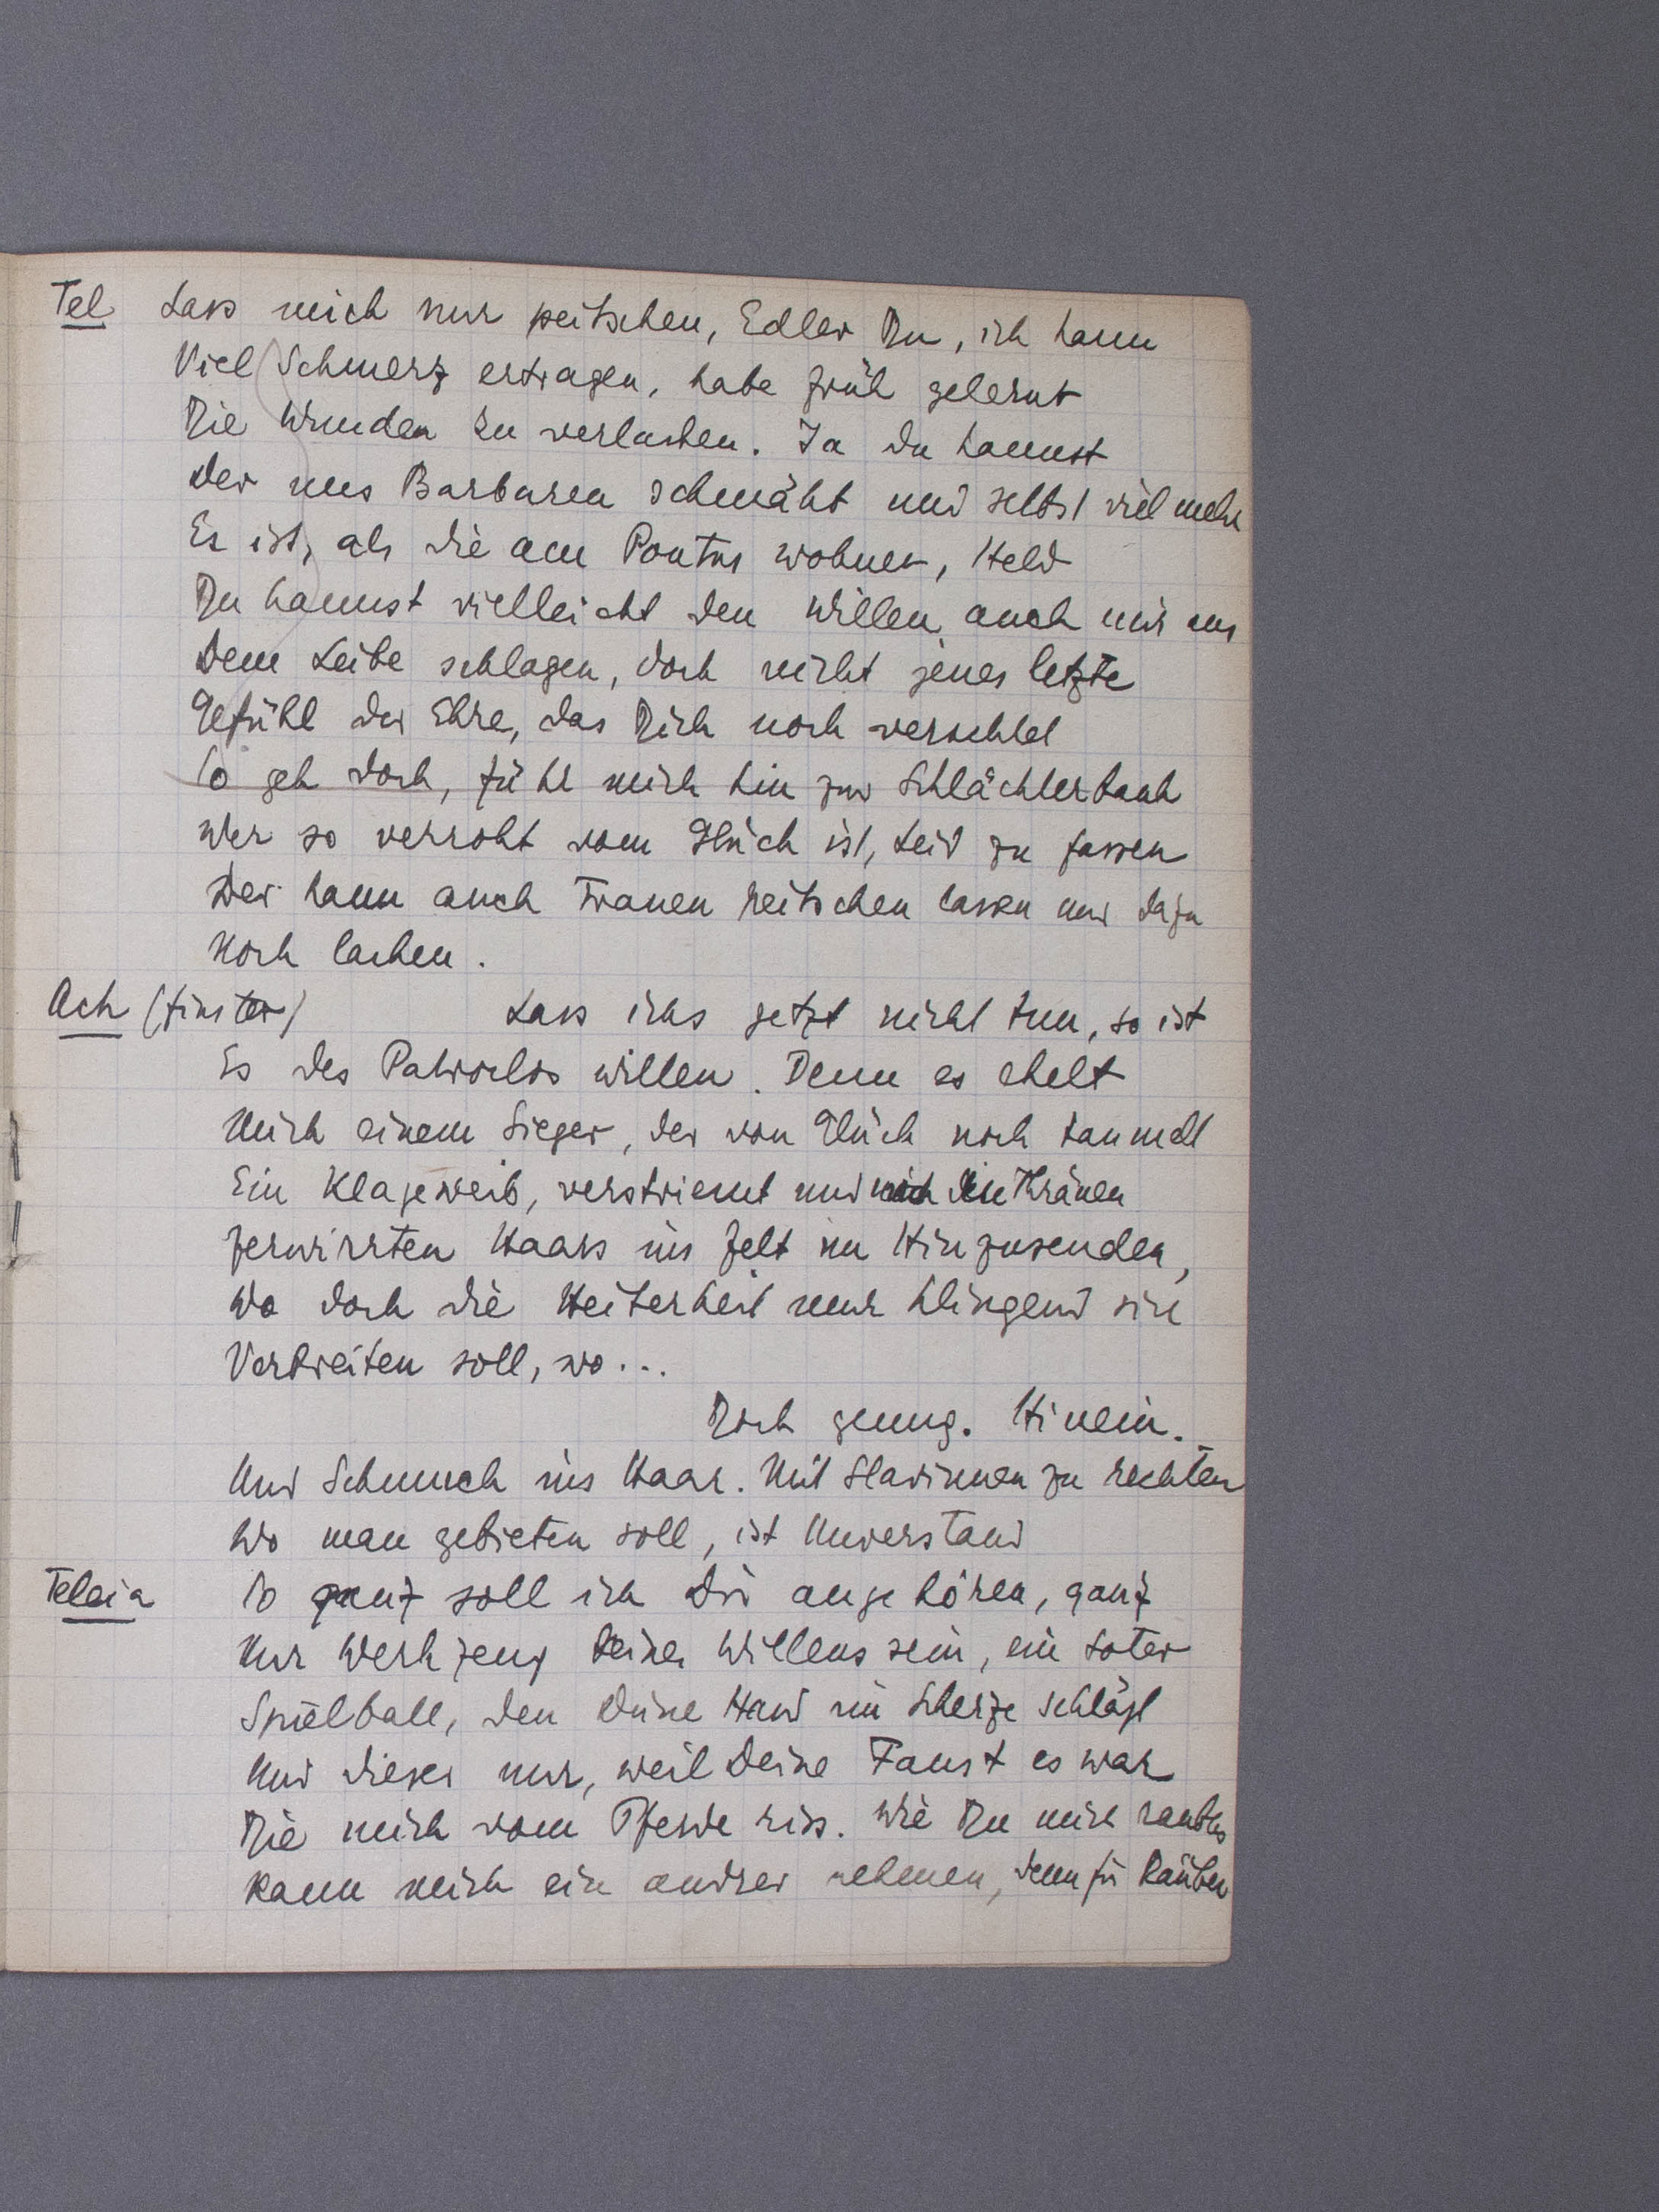 Tel Lass mich nur peitschen, Edler Du, ich kann
Viel Schmerz ertragen, habe früh gelernt
Die Wunden zu verlachen. Ja du kannst
Der uns Barbaren schmäht und selbst viel mehr
Es ist, als die am Pontus wohnen, Held
Du kannst vielleicht den Willen auch mir aus
Dem Leibe schlagen, doch nicht jenes letzte
Gefühl der Ehre, das Dich noch verachtet
So geh doch, führ mich hin zur Schlächterbank
Wer so verroht vom Glück ist, Leid zu fassen
Der kann auch Frauen peitschen lassen und dazu
Noch lachen.
Ach (finster) Lass ichs jetzt nicht tun, so ist
Es des Patroclos willen. Denn es ekelt
Mich einem Sieger, der von Glück noch taumelt
Ein Klageweib, verstriemt und in Thränen
Zerwirrten Haars ins Zelt ihm hinzusenden,
Wo doch die Heiterheit nur klingend sich
Verbreiten soll, wo...
Doch genug. Hinein.
Und Schmuck ins Haar. Mit Sklavinnen zu rechten
Wo man gebieten soll, ist Unverstand
Teleia So ganz soll ich Dir angehören, ganz
Nur Werkzeug Deines Willens sein, ein toter
Spielball, den Deine Hand im Scherze schlägt
Und dieses nur, weil Deine Faust es war
Die mich vom Pferde riss. Wie Du mich raubtest
Kann mich ein andrer nehmen, denn für Räuber